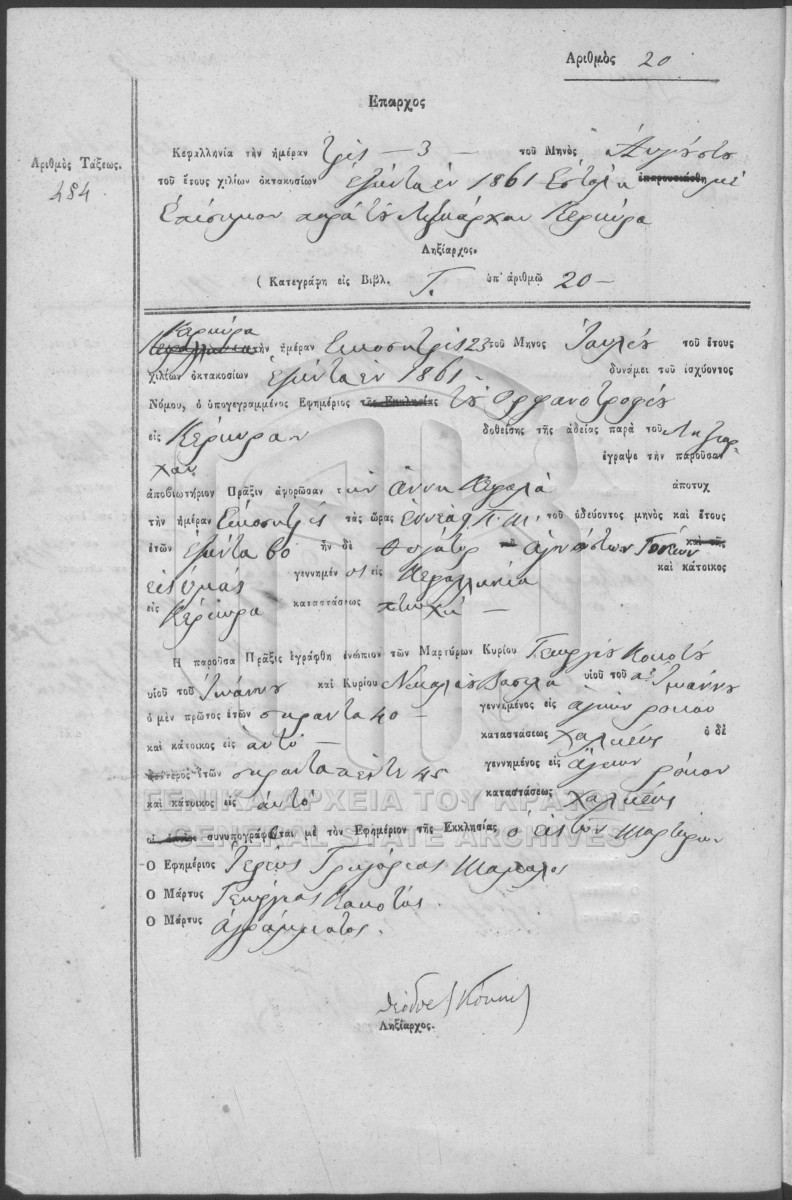 Αριθμὸς 20
Επαρχος
Αριθμὸς Τάξεως.
484
Κεφαλληνία τὴν ἡμέραν τρὶς — 3 — τοῦ Μηνὸς Αὐγούστου
τοῦ ἔτους χιλίων ὀκτακοσίων ἑξῆντα ἓν 1861 Ἐστάλη
Ἐπίσημον παρὰ τοῦ Ληξιάρχου Κερκύρα
Ληξίαρχος.
( Κατεγράφη εἰς Βιβλ. Γ. ὑπ' ἀριθμῶ 20 —
Κερκύρα
τὴν ἡμέραν Εἰκοσητρὶς 23 τοῦ Μηνος Ἰουλίου τοῦ ἔτους
χιλίων ὀκτακοσίων ἑξῆντα ἓν 1861 - δυνάμει τοῦ ἰσχύοντος
Νόμου, ὁ ὑπογεγραμμένος Ἐφημέριος τῆς Ἐκκλησίας τοῦ Ὀρφανοτροφίου
εἰς Κέρκυραν δοθείσης τῆς ἀδείας παρὰ τοῦ Ληξιάρ
χου ἔγραψε τὴν παροῦσαν
ἀποβιωτήριον Πρᾶξιν ἀφορῶσαν τὴν Ἄννη Κεφαλᾶ ἀποτυχ
τὴν ἡμέραν Εἰκοσητρὶς τὰς ὥρας ἐννέα Π.Μ. τοῦ ὁδεύοντος μηνὸς καὶ ἔτους
ἐτῶν ἑξῆντα 60 ἦν δὲ θυγάτηρ ἀγνώστων Γονέων καὶ τῆς
γεννημέν εἰς Κεφαλληνία καὶ κάτοικος
εἰς Κέρκυρα καταστάσεως πτωχή —
Η παροῦσα Πρᾶξις ἐγράφθη ἐνώπιον τῶν Μαρτύρων Κυρίου Γεωργίου Κοκοτοῦ
υἱοῦ τοῦ Ἰωάννου καὶ Κυρίου Νικολάου Βασιλᾶ υἱοῦ τοῦ Ἰωάννου
ὁ μὲν πρῶτος ἐτῶν σαράντα 40 — γεννημένος εἰς ἅγιον ρόκον
καὶ κάτοικος εἰς αὐτό — καταστάσεως χαλκεύς ὁ δὲ
δεύτερος ἐτῶν σαράντα πέντε 45 γεννημένος εἰς ἅγιον ρόκον
καὶ κάτοικος εἰς αὐτό καταστάσεως χαλκεύς
συνυπογράφεται μὲ τὸν Ἐφημέριον τῆς Ἐκκλησίας ὁ εἷς τῶν Μαρτύρων
Ο Ἐφημέριος Ἱερεὺς Γρηγόριος
Ο Μάρτυς Γεώργιος Κοκοτός
Ο Μάρτυς ἀγράμματος.
Ληξίαρχος.
ΓΕΝΙΚΑ ΑΡΧΕΙΑ ΤΟΥ ΚΡΑΤΟΥΣ
GENERAL STATE ARCHIVES